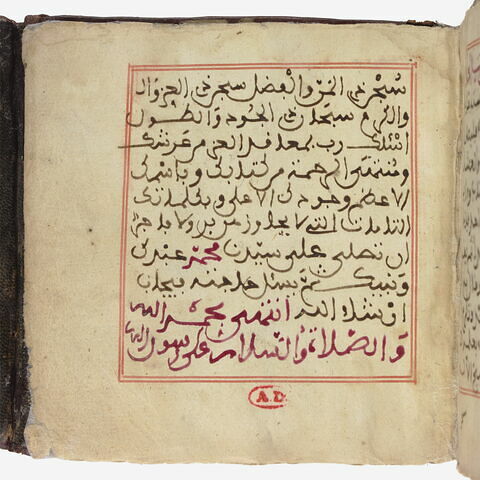 سبحن ذي المن والفضل سبحن ذي العز وال
والكرم سبحان ذي الجود والطول
اسئلك رب بمعاقد العز من عرشك
ومنتهى الرحمة من كتابك وباسمك
الاعظم وجودك الاعلى وبكلماتك
التامات التي لا يجاوزهن بر ولا فاجر
ان تصلي على سيدن محمد عبدك
ونبيك ثم يسئل حاجته يجاب
ان شاء الله انتهى بحمد الله
والصلاة والسلام على رسول الله
A.D.